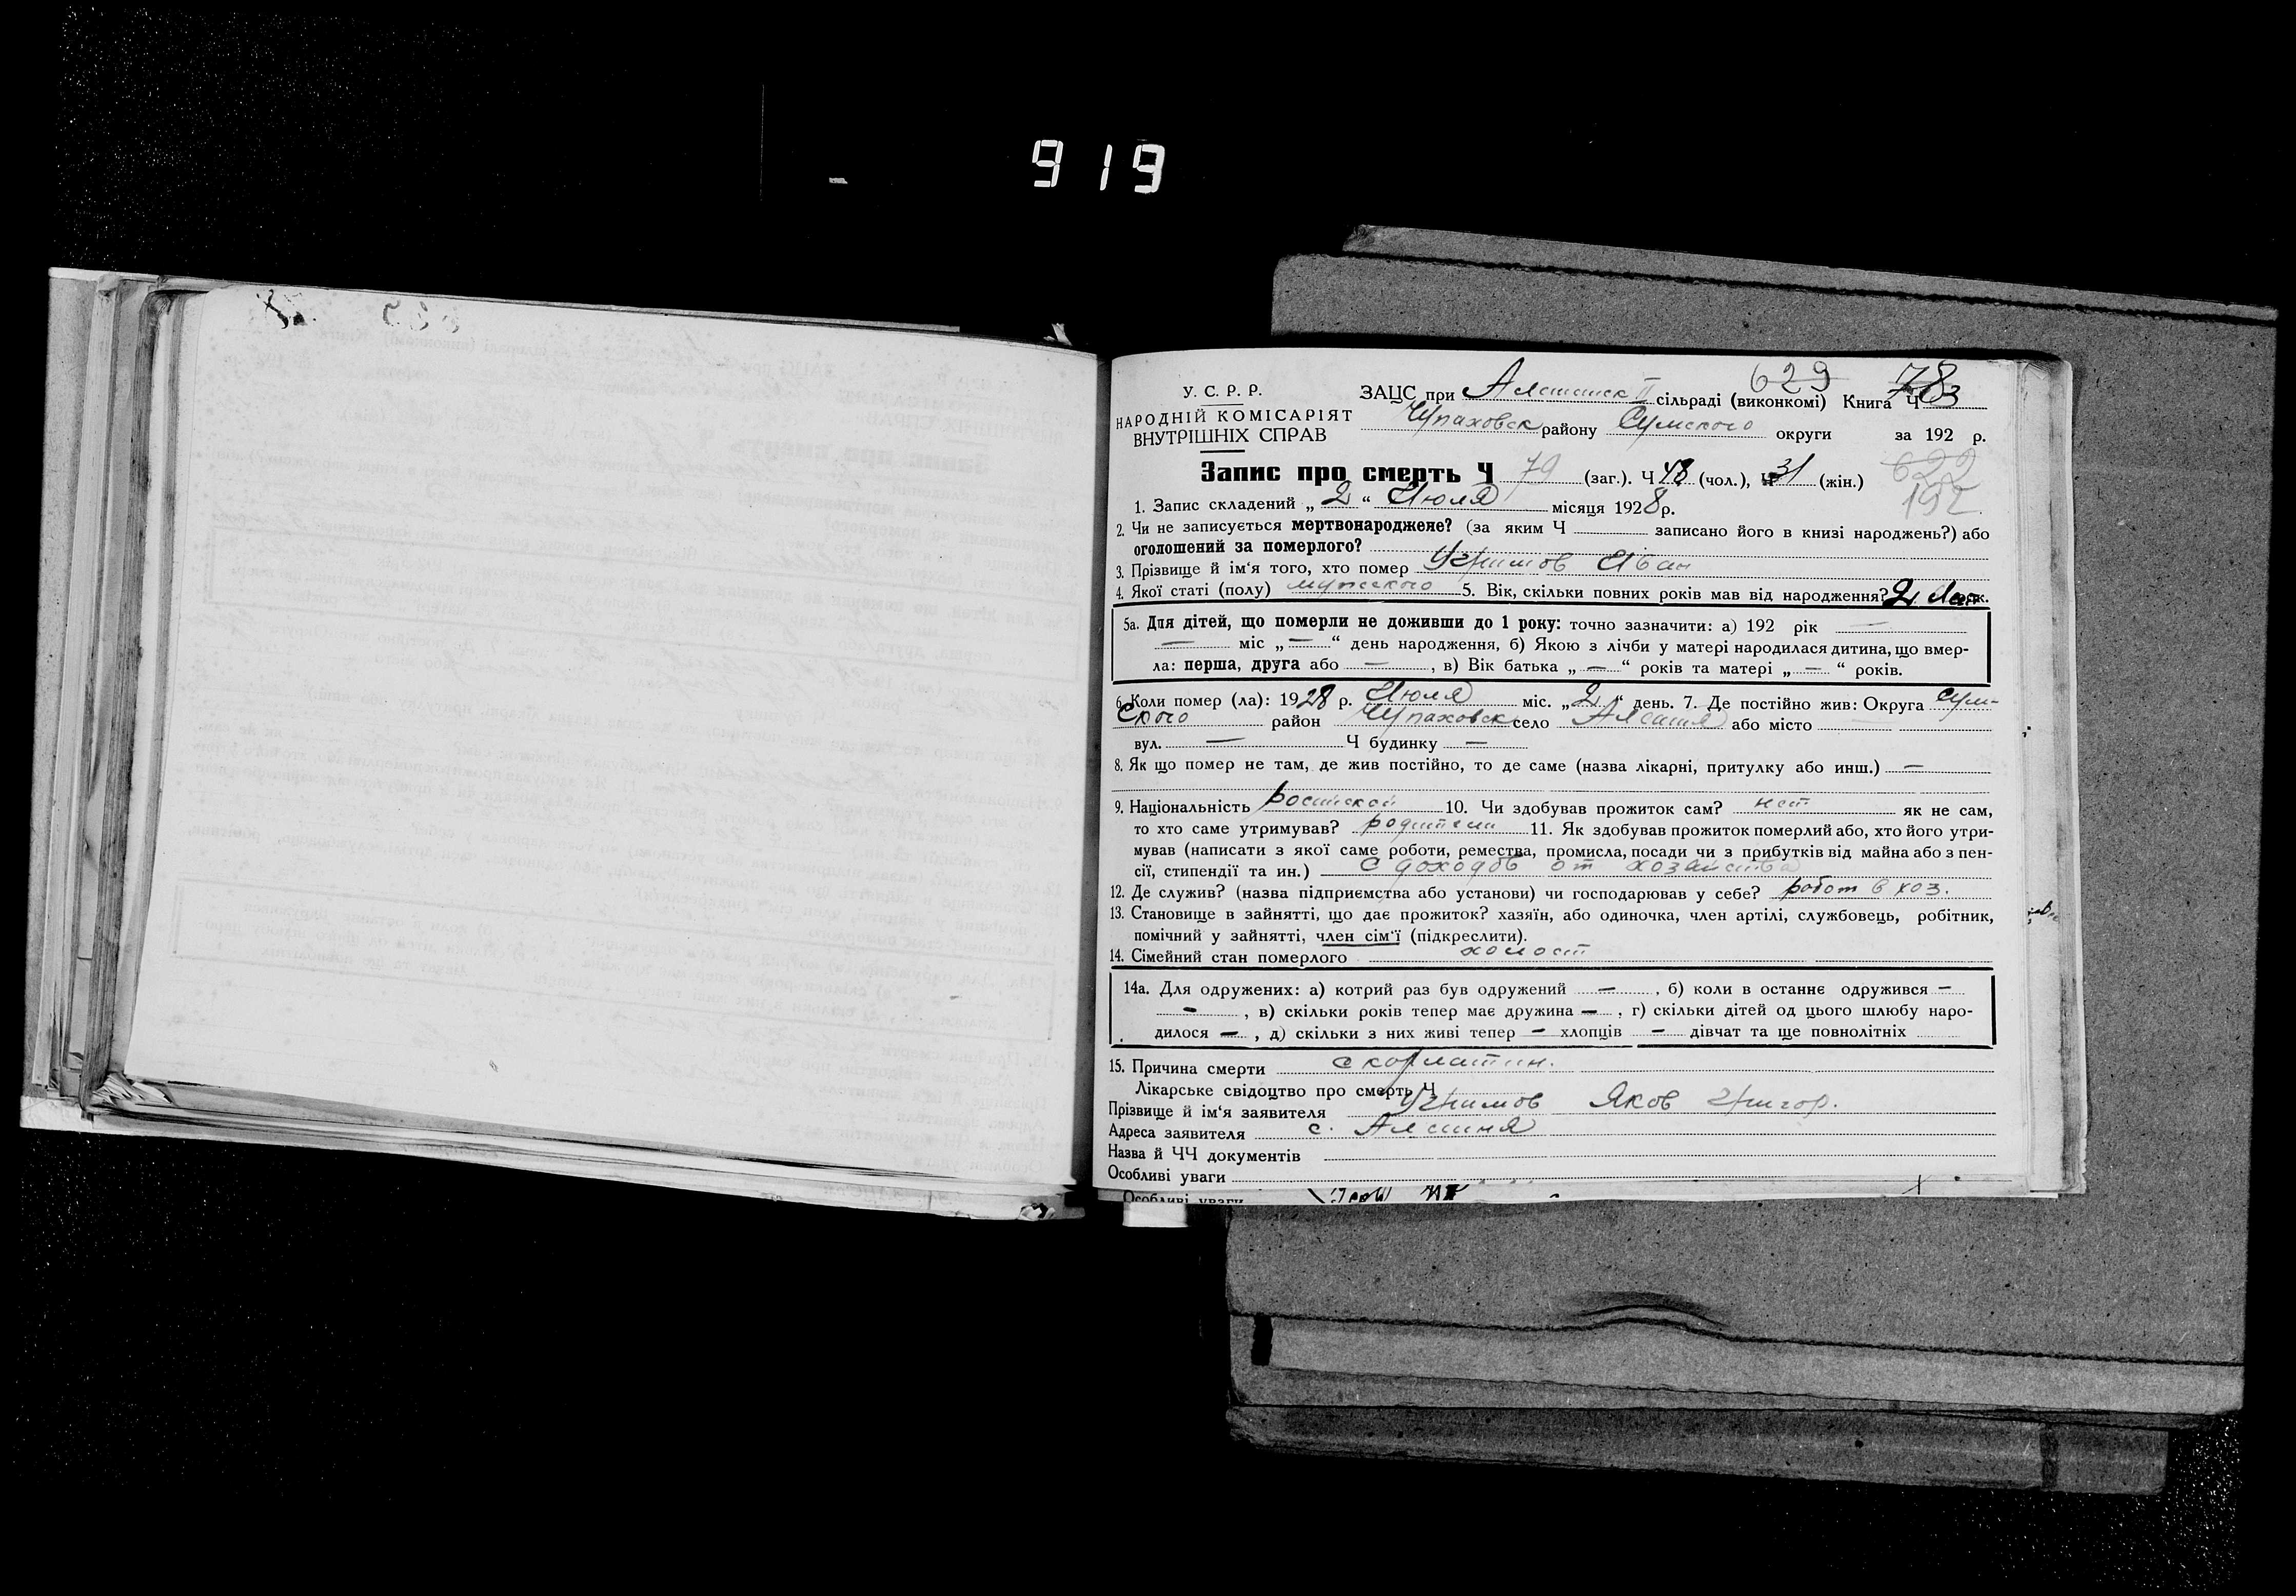 919
629 78
У. С. Р. Р.
НАРОДНІЙ КОМІСАРІЯТ
ВНУТРІШНІХ СПРАВ
ЗАЦС при II сільраді (виконкомі) Книга Ч 3
Чупаховск району Сумского округи за 192 р.
Запис про смерть Ч 79 (заг.). Ч 48 (чол.), Ч 31 (жін.) 622
192
1. Запис складений „ 2 “ Июля місяця 1928 р.
2. Чи не записується мертвонароджене? (за яким Ч записано його в книзі народжень?) або
оголошений за померлого?
3. Прізвище й ім‘я того, хто помер Иван
4. Якої статі (полу) мужского 5. Вік, скільки повних років мав від народження? 2
5а. Для дітей, що померли не доживши до 1 року: точно зазначити: а) 192 рік —
— міс „ — “ день народження, б) Якою з лічби у матері народилася дитина, що вмер-
ла: перша, друга або — , в) Вік батька „ — “ років та матері „ — “ років.
6. Коли помер (ла): 1928 р. Июля міс. „ 2 “ день. 7. Де постійно жив: Округа Сум-
ского район Чупаховск село або місто
вул. — Ч будинку —
8. Як що помер не там, де жив постійно, то де саме (назва лікарні, притулку або инш.) —
9. Національність росийской 10. Чи здобував прожиток сам? нет як не сам,
то хто саме утримував? родители 11. Як здобував прожиток померлий або, хто його утри-
мував (написати з якої саме роботи, ремества, промисла, посади чи з прибутків від майна або з пен-
сії, стипендії та ин.) с доходов от хозяйства
12. Де служив? (назва підприємства або установи) чи господарював у себе? работ в хоз.
13. Становище в зайнятті, що дає прожиток? хазяїн, або одиночка, член артілі, службовець, робітник,
помічний у зайнятті, член сім‘ї (підкреслити).
14. Сімейний стан померлого холост
14а. Для одружених: а) котрий раз був одружений — , б) коли в останнє одружився —
— , в) скільки років тепер має дружина — , г) скільки дітей од цього шлюбу наро-
дилося — , д) скільки з них живі тепер — хлопців — дівчат та ще повнолітніх
15. Причина смерти скорлатин.
Лікарське свідоцтво про смерть Ч
Прізвище й ім‘я заявителя Яков Григор.
Адреса заявителя с.
Назва й ЧЧ документів
Особливі уваги
Особливі уваги